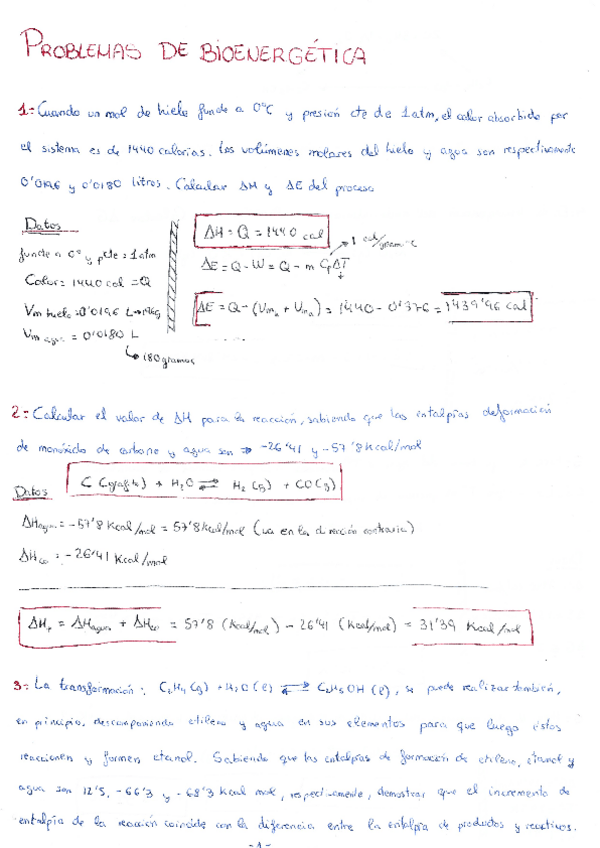 PROBLEMAS DE BIOENERGÉTICA
1.- Cuando un mol de hielo funde a 0ºC y presión cte de 1atm, el calor absorbido por
el sistema es de 1440 calorías. Los volúmenes molares del hielo y agua son respectivamente
0'0196 y 0'0180 litros. Calcular ΔH y ΔE del proceso
Datos
funde a 0º y pcte = 1atm
Calor = 1440 cal = Q
Vm hielo = 0'0196 L
Vm agua = 0'0180 L
180 gramos
ΔH = Q = 1440 cal
1 cal/gramo ºC
ΔE = Q - W = Q - m Cp ΔT
ΔE = Q - (Vm + Vm) = 1440 - 0'376 = 1439'96 cal
2.- Calcular el valor de ΔH para la reacción, sabiendo que las entalpías de formación
de monóxido de carbono y agua son ⇒ -26'41 y -57'8 Kcal/mol
Datos
C (grafito) + H2O ⇌ H2 (g) + CO (g)
ΔHagua = -57'8 Kcal/mol = 57'8 Kcal/mol (va en la dirección contraria)
ΔHco = -26'41 Kcal/mol
ΔHr = ΔHagua + ΔHco = 57'8 (Kcal/mol) - 26'41 (Kcal/mol) = 31'39 Kcal/mol
3.- La transformación: C2H4 (g) + H2O (l) ⇌ C2H5OH (l), se puede realizar también,
en principio, descomponiendo etileno y agua en sus elementos para que luego éstos
reaccionen y formen etanol. Sabiendo que las entalpías de formación de etileno, etanol y
agua son 12'5, -66'3 y -68'3 Kcal mol, respectivamente, demostrar que el incremento de
entalpía de la reacción coincide con la diferencia entre la entalpía de productos y reactivos.
-1-